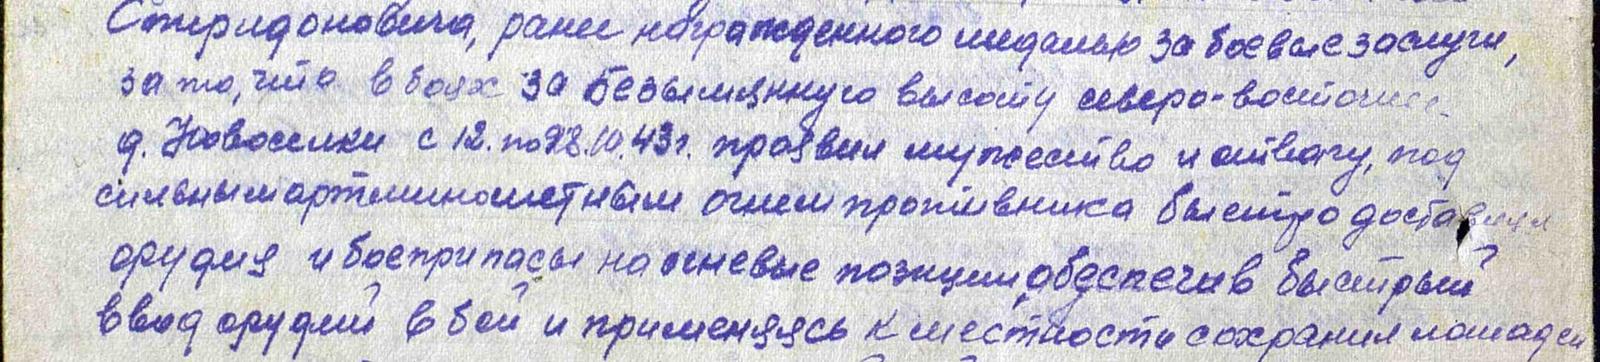 Спиридоновича, ранее награжденного медалью за боевые заслуги,
за то, что в боях за Безымянную высоту северо-восточнее
д. Новоселки с 12. по 28.10.43г. проявил мужество и отвагу, под
сильным артминометным огнем противника быстро доставил
орудия и боеприпасы на огневые позиции, обеспечив быстрый
ввод орудий в бой и применяясь к местности сохранил лошадей